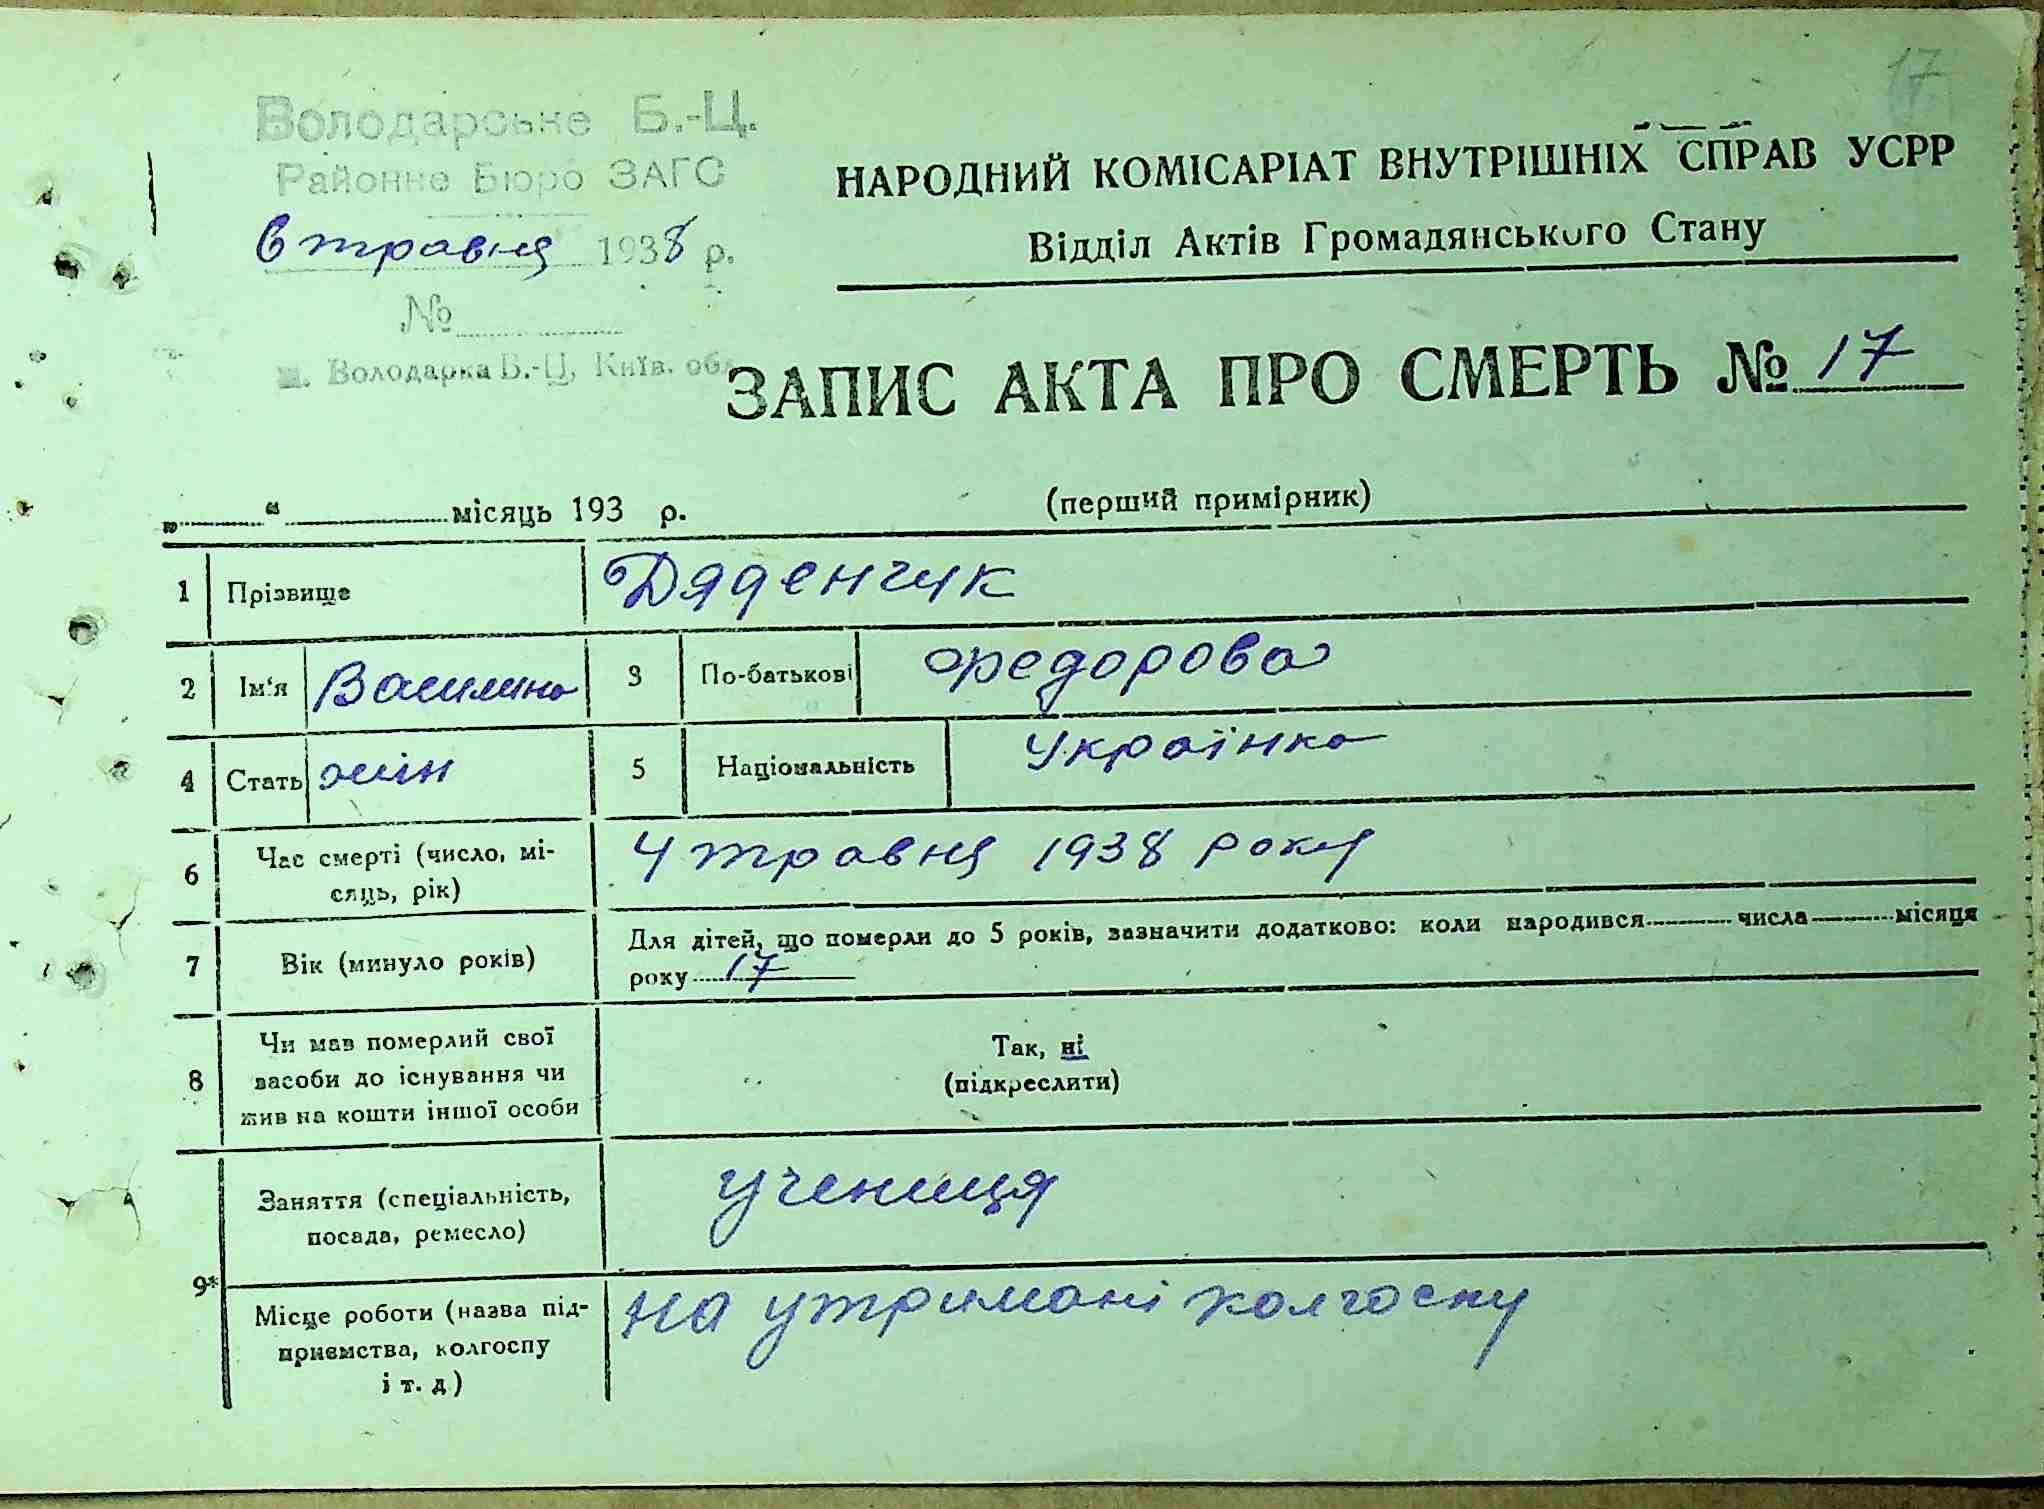 17
Володарське Б.-Ц.
Районне Бюро ЗАГС
6 травня 1938 р.
№
м. Володарка Б.-Ц, Київ. обл.
НАРОДНИЙ КОМІСАРІАТ ВНУТРІШНІХ СПРАВ УСРР
Відділ Актів Громадянського Стану
ЗАПИС АКТА ПРО СМЕРТЬ № 17
„ “ місяць 193 р. (перший примірник)
1 Прізвище Дяденчук
2 Ім‘я Василина 3 По-батькові Федорова
4 Стать жін 5 Національність Українка
6 Час смерті (число, мі-
сяць, рік) 4 травня 1938 року
7 Вік (минуло років) Для дітей, що померли до 5 років, зазначити додатково: коли народився числа місяця
року 17
8 Чи мав померлий свої
засоби до існування чи
жив на кошти іншої особи
Так, ні
(підкреслити)
9* Заняття (спеціальність,
посада, ремесло) учениця
Місце роботи (назва під-
приємства, колгоспу
і т. д) на утримані колгоспу